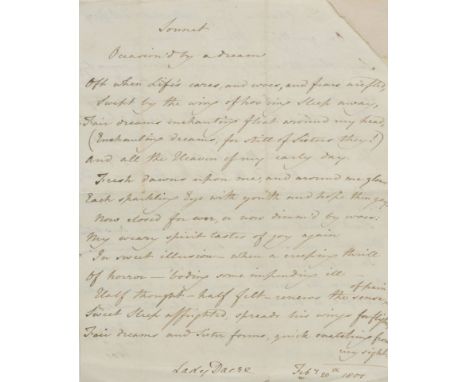 Sonnet
Occasion'd by a dream
Oft when Life's cares, and woes, and fears are fled,
Swept by the wing of hov'ring Sleep away,
Fair dreams enchanting float around my head,
(Enchanting dreams, for still of Sisters they!)
And all the Heaven of my early day
Fresh dawns upon me, and around me glow
Each sparkling Eye with youth and hope then gay
Now closed for ever, or now dimm'd by woe.
My weary spirit tastes of joy again
In sweet illusion — when a creeping thrill
Of horror — boding some impending ill
Half thought — half felt — renews the sense of pain
Sweet Sleep affrighted, spreads his wings for flight
Fair dreams and Sister forms, quick snatching from
my sight
Lady Dacre Feb.y 20th